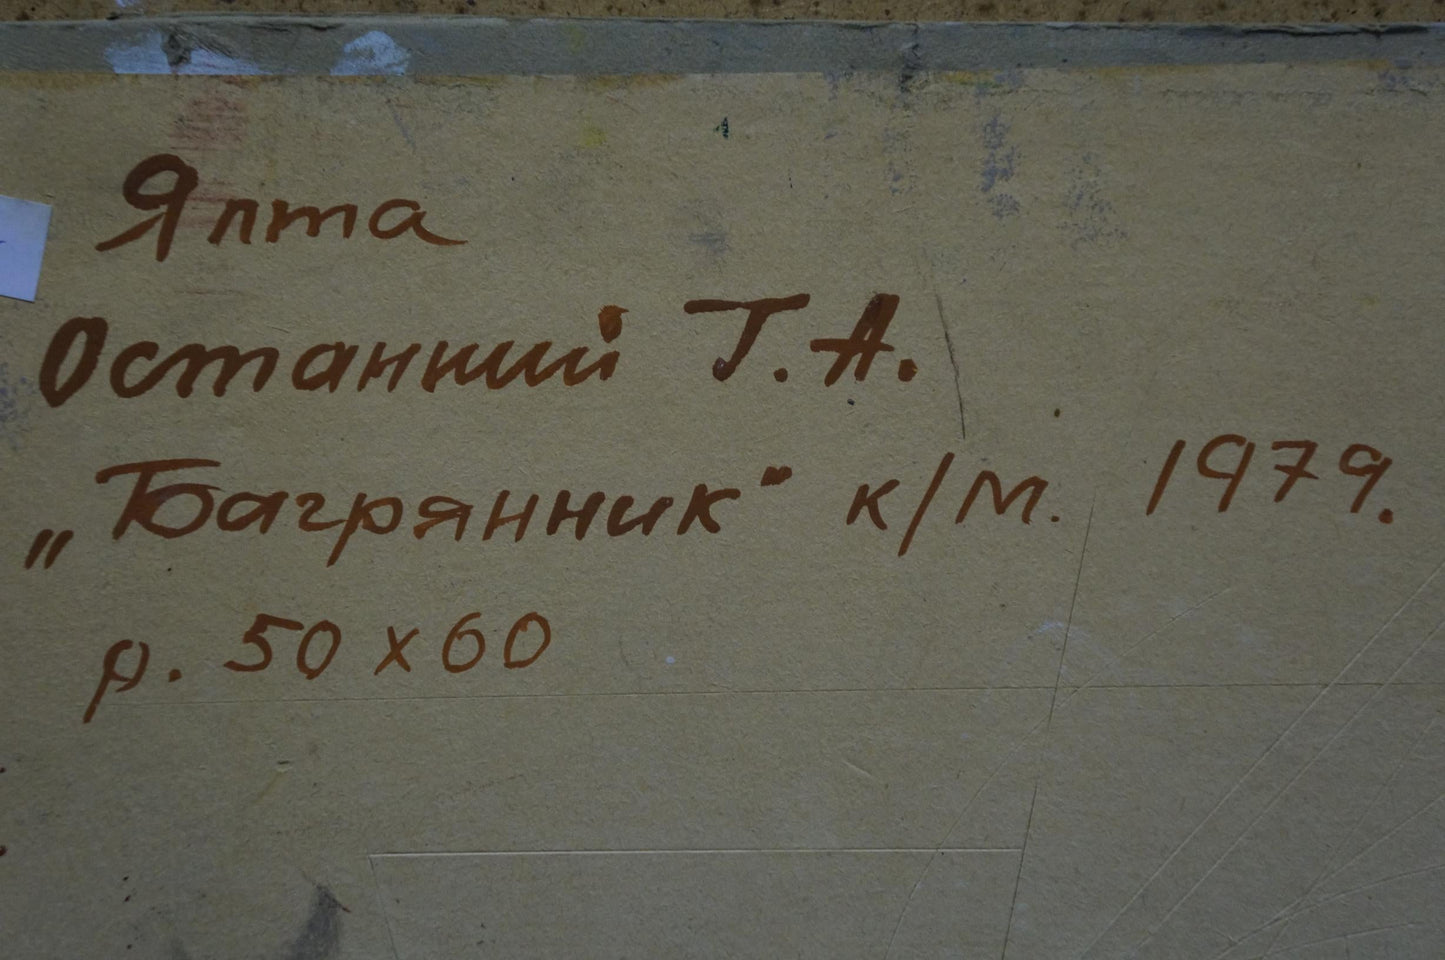 Ялта
Останний Г.А.
„Багрянник" к/м. 1979.
р. 50х60